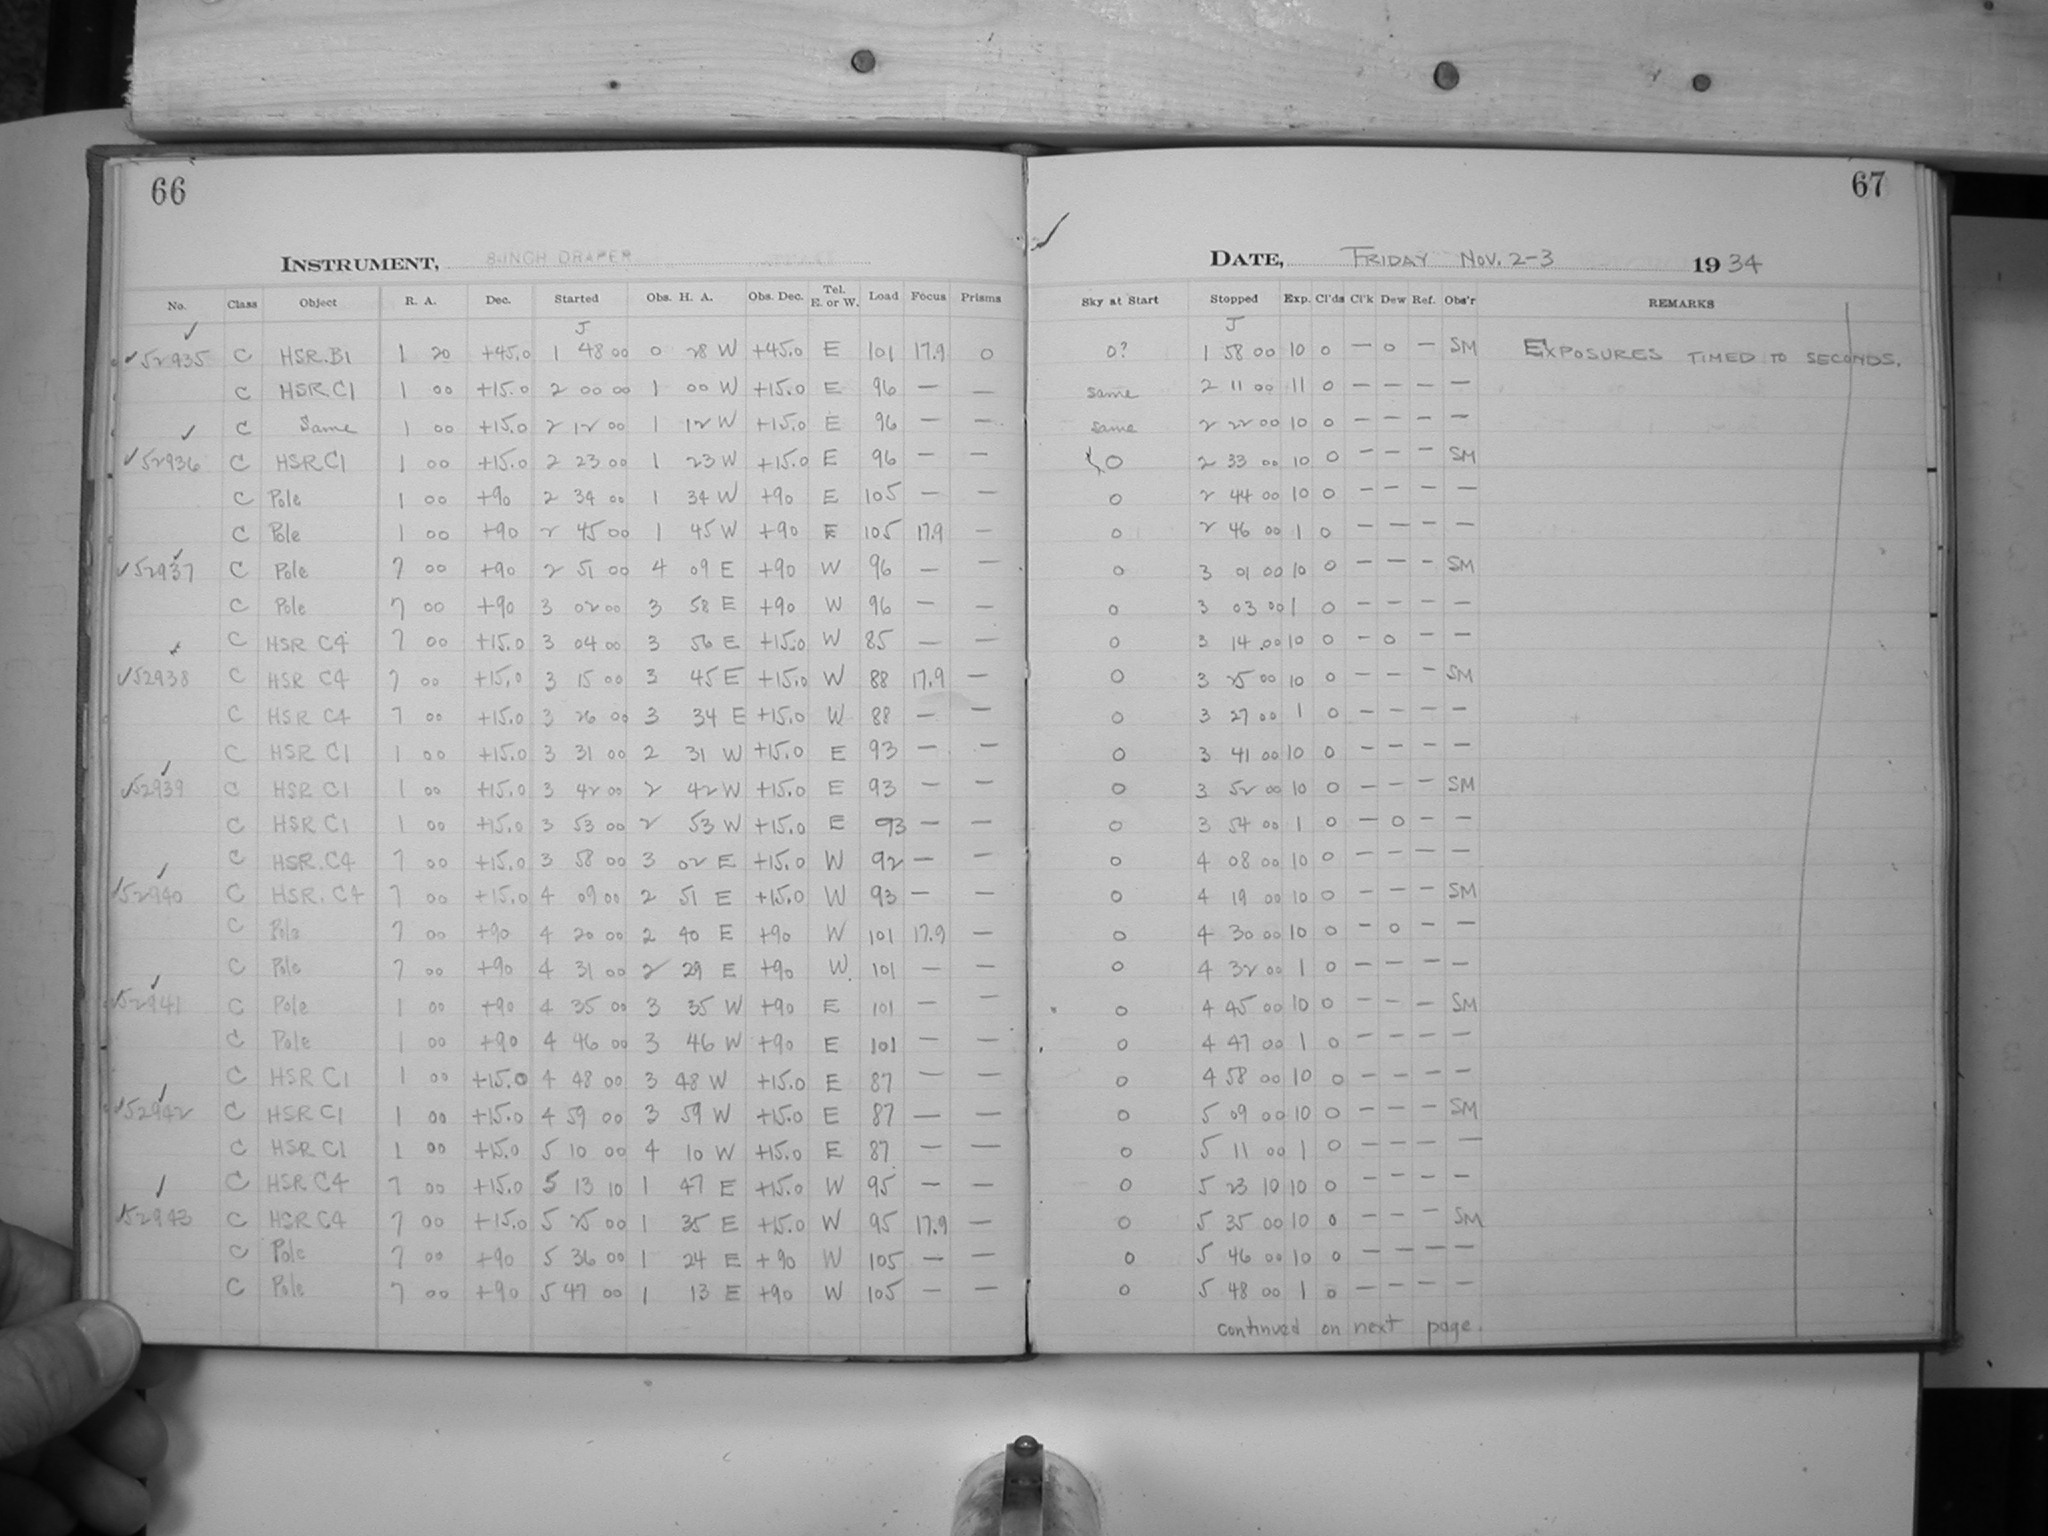 66
INSTRUMENT, 8-INCH DRAPER
No. Class Object R. A. Dec. Started Obs. H. A. Obs. Dec. Tel. E. or W. Load Focus Prisms
J
52935 C HSR.B1 1 20 +45.0 1 48 00 0 28 W +45.0 E 101 17.9 0
C HSR.C1 1 00 +15.0 2 00 00 1 00 W +15.0 E 96 — —
C Same 1 00 +15.0 2 12 00 1 12 W +15.0 E 96 — —
52936 C HSR.C1 1 00 +15.0 2 23 00 1 23 W +15.0 E 96 — —
C Pole 1 00 +90 2 34 00 1 34 W +90 E 105 — —
C Pole 1 00 +90 2 45 00 1 45 W +90 E 105 17.9 —
52937 C Pole 7 00 +90 2 51 00 4 09 E +90 W 96 — —
C Pole 7 00 +90 3 02 00 3 58 E +90 W 96 — —
C HSR C4 7 00 +15.0 3 04 00 3 56 E +15.0 W 85 — —
52938 C HSR C4 7 00 +15.0 3 15 00 3 45 E +15.0 W 88 17.9 —
C HSR C4 7 00 +15.0 3 26 00 3 34 E +15.0 W 88 — —
C HSR C1 1 00 +15.0 3 31 00 2 31 W +15.0 E 93 — —
52939 C HSR C1 1 00 +15.0 3 42 00 2 42 W +15.0 E 93 — —
C HSR C1 1 00 +15.0 3 53 00 2 53 W +15.0 E 93 — —
C HSR.C4 7 00 +15.0 3 58 00 3 02 E +15.0 W 92 — —
52940 C HSR.C4 7 00 +15.0 4 09 00 2 51 E +15.0 W 93 — —
C Pole 7 00 +90 4 20 00 2 40 E +90 W 101 17.9 —
C Pole 7 00 +90 4 31 00 2 29 E +90 W 101 — —
52941 C Pole 1 00 +90 4 35 00 3 35 W +90 E 101 — —
C Pole 1 00 +90 4 46 00 3 46 W +90 E 101 — —
C HSR C1 1 00 +15.0 4 48 00 3 48 W +15.0 E 87 — —
52942 C HSR C1 1 00 +15.0 4 59 00 3 59 W +15.0 E 87 — —
C HSR C1 1 00 +15.0 5 10 00 4 10 W +15.0 E 87 — —
C HSR C4 7 00 +15.0 5 13 10 1 47 E +15.0 W 95 — —
52943 C HSR C4 7 00 +15.0 5 25 00 1 35 E +15.0 W 95 17.9 —
C Pole 7 00 +90 5 36 00 1 24 E +90 W 105 — —
C Pole 7 00 +90 5 47 00 1 13 E +90 W 105 — —
67
DATE, FRIDAY NOV. 2-3 1934
Sky at Start Stopped Exp. Cl'ds Cl'k Dew Ref. Obs'r REMARKS
J
0? 1 58 00 10 0 — 0 — SM EXPOSURES TIMED TO SECONDS.
same 2 11 00 11 0 — — — —
same 2 22 00 10 0 — — — —
0 2 33 00 10 0 — — — SM
0 2 44 00 10 0 — — — —
0 2 46 00 1 0 — — — —
0 3 01 00 10 0 — — — SM
0 3 03 00 1 0 — — — —
0 3 14 00 10 0 — 0 — —
0 3 25 00 10 0 — — — SM
0 3 27 00 1 0 — — — —
0 3 41 00 10 0 — — — —
0 3 52 00 10 0 — — — SM
0 3 54 00 1 0 — 0 — —
0 4 08 00 10 0 — — — —
0 4 19 00 10 0 — — — SM
0 4 30 00 10 0 — 0 — —
0 4 32 00 1 0 — — — —
0 4 45 00 10 0 — — — SM
0 4 47 00 1 0 — — — —
0 4 58 00 10 0 — — — —
0 5 09 00 10 0 — — — SM
0 5 11 00 1 0 — — — —
0 5 23 10 10 0 — — — —
0 5 35 00 10 0 — — — SM
0 5 46 00 10 0 — — — —
0 5 48 00 1 0 — — — —
continued on next page.